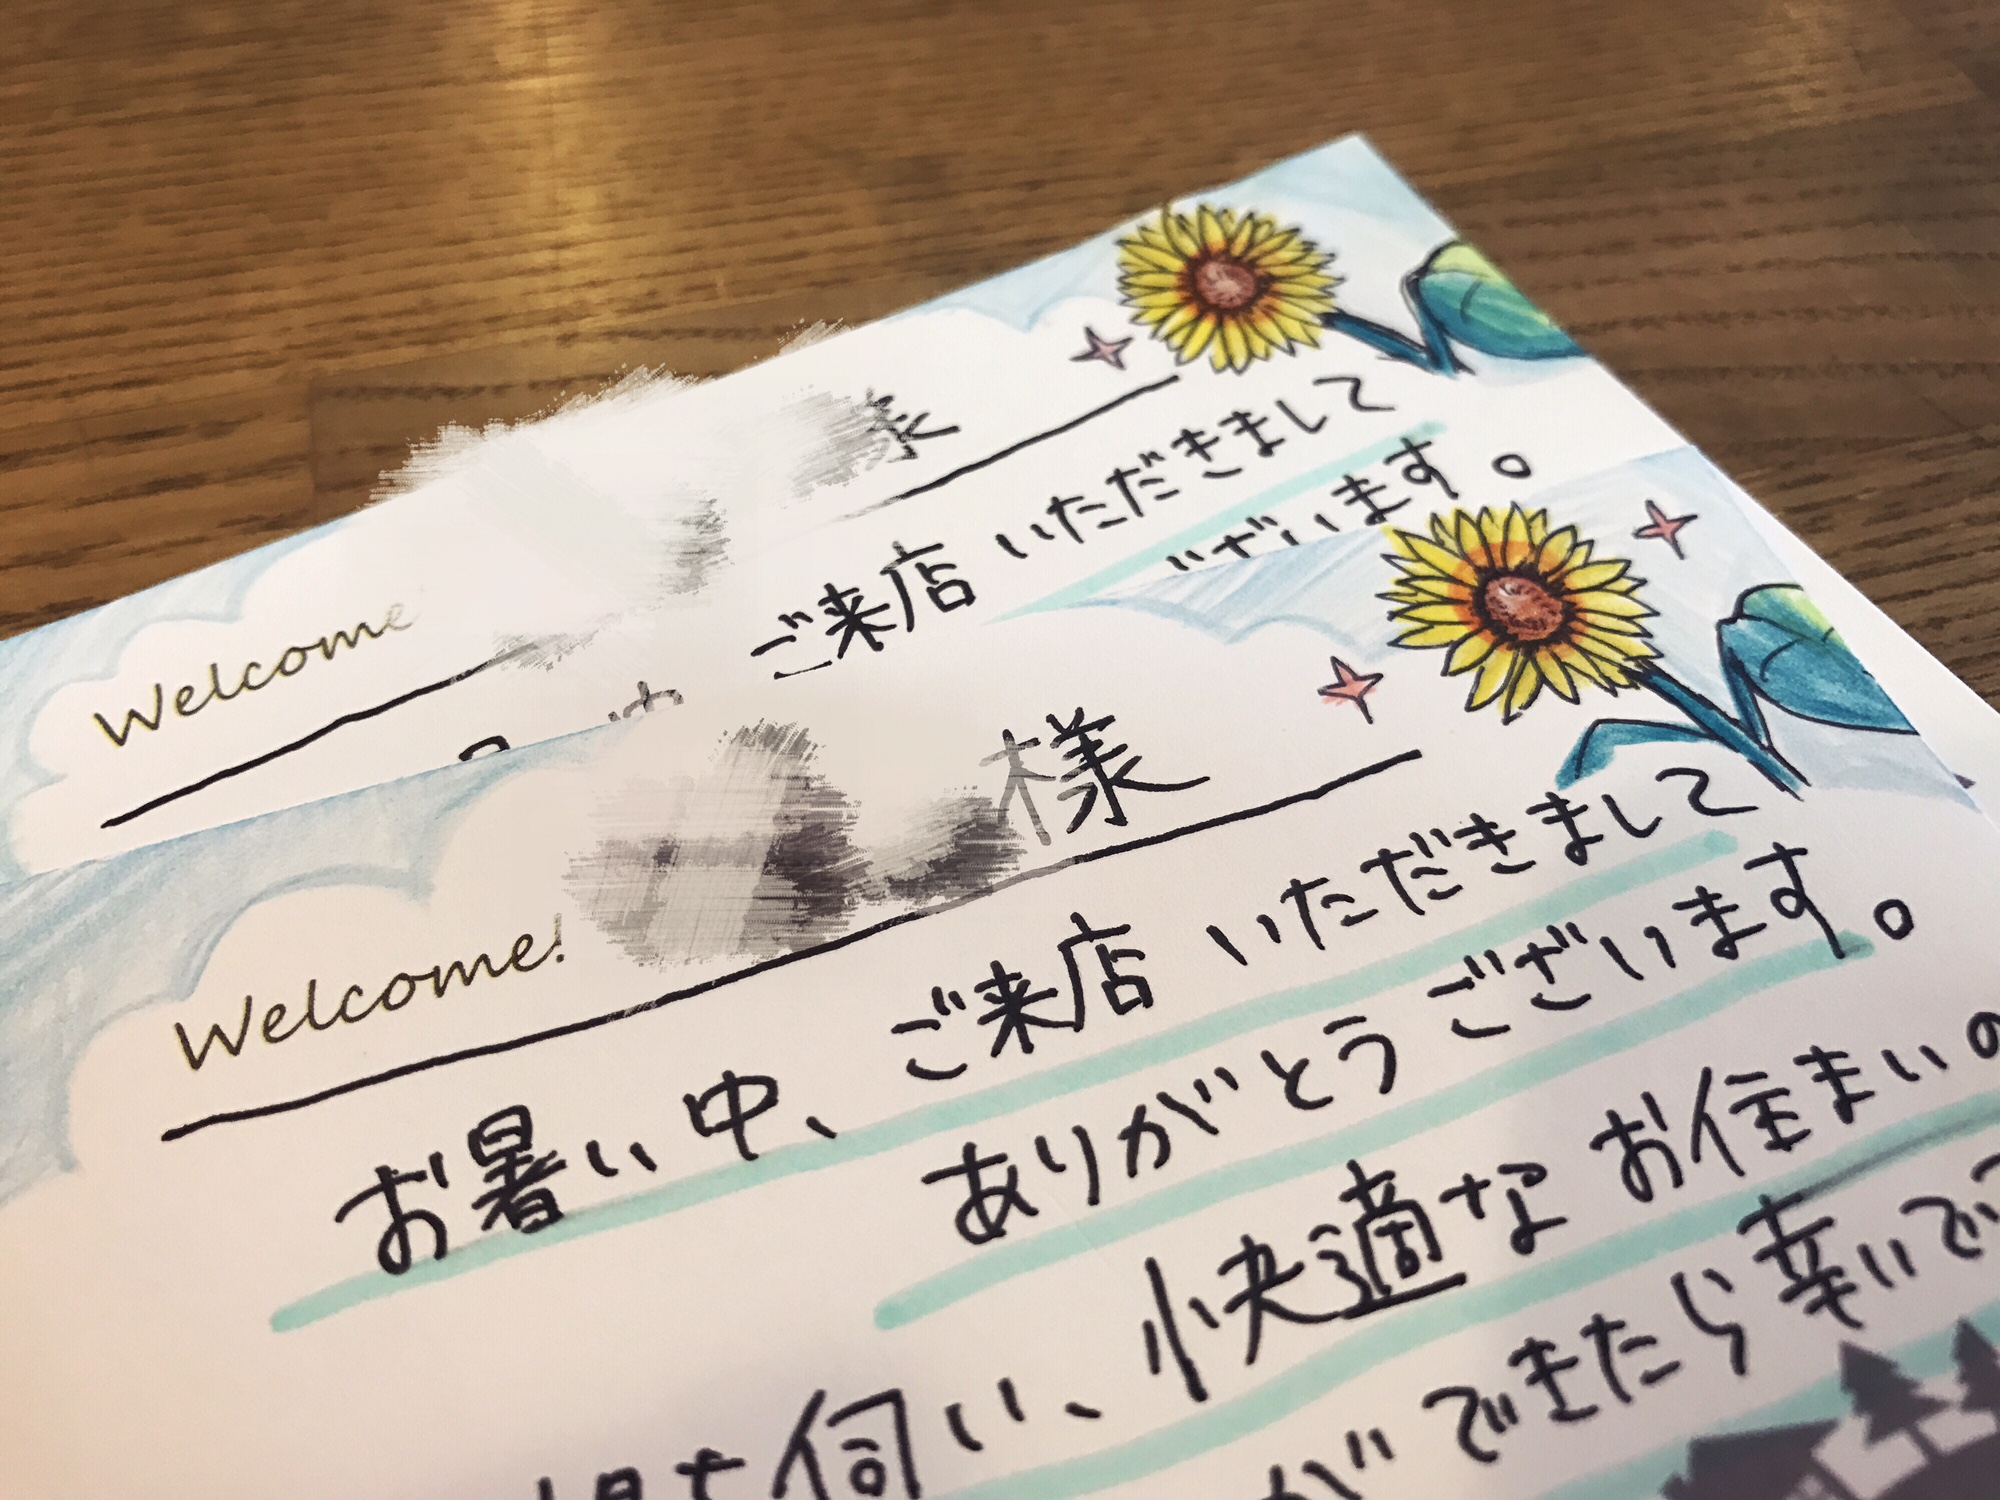 Welcome
様
ご来店 いただきまして
ざいます。
Welcome!
様
お暑い中、ご来店 いただきまして
ありがとうございます。
を伺い、快適なお住まいの
ができたら幸いで